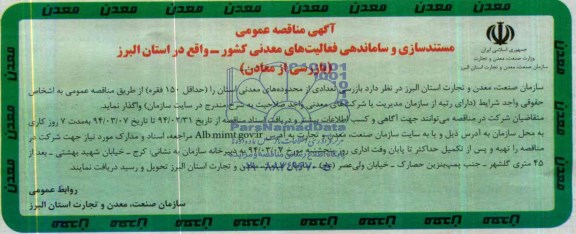 آگهی مناقصه عمومی
مستندسازی و ساماندهی فعالیت‌های معدنی کشور ــ واقع در استان البرز
(بازرسی از معادن)
جمهوری اسلامی ایران
وزارت صنعت، معدن و تجارت
سازمان صنعت، معدن و تجارت استان البرز
سازمان صنعت، معدن و تجارت استان البرز در نظر دارد بازرسی تعدادی از محدوده‌های معدنی استان را (حداقل ۱۵۰ فقره) از طریق مناقصه عمومی به اشخاص
حقوقی واجد شرایط (دارای رتبه از سازمان مدیریت یا شرکت‌های معدنی واجد صلاحیت به شرح مندرج در سایت سازمان) واگذار نماید.
متقاضیان شرکت در مناقصه می‌توانند جهت آگاهی و کسب اطلاعات بیشتر و دریافت اسناد مناقصه از تاریخ ۹۴/۰۲/۳۱ تا تاریخ ۹۴/۰۳/۰۷ به‌مدت ۷ روز کاری
به محل سازمان به آدرس ذیل و یا به سایت سازمان صنعت، معدن و تجارت به آدرس Alb.mimt.gov.ir مراجعه، اسناد و مدارک مورد نیاز جهت شرکت در
مناقصه را تهیه و پس از تکمیل حداکثر تا پایان وقت اداری روز مورخ به دبیرخانه سازمان به نشانی: کرج ـ خیابان شهید بهشتی ـ بعد از
۴۵ متری گلشهر ـ جنب پمپ‌بنزین حصارک ـ خیابان ولی‌عصر معدن و تجارت استان البرز تحویل و رسید دریافت نمایند.
روابط عمومی
سازمان صنعت، معدن و تجارت استان البرز